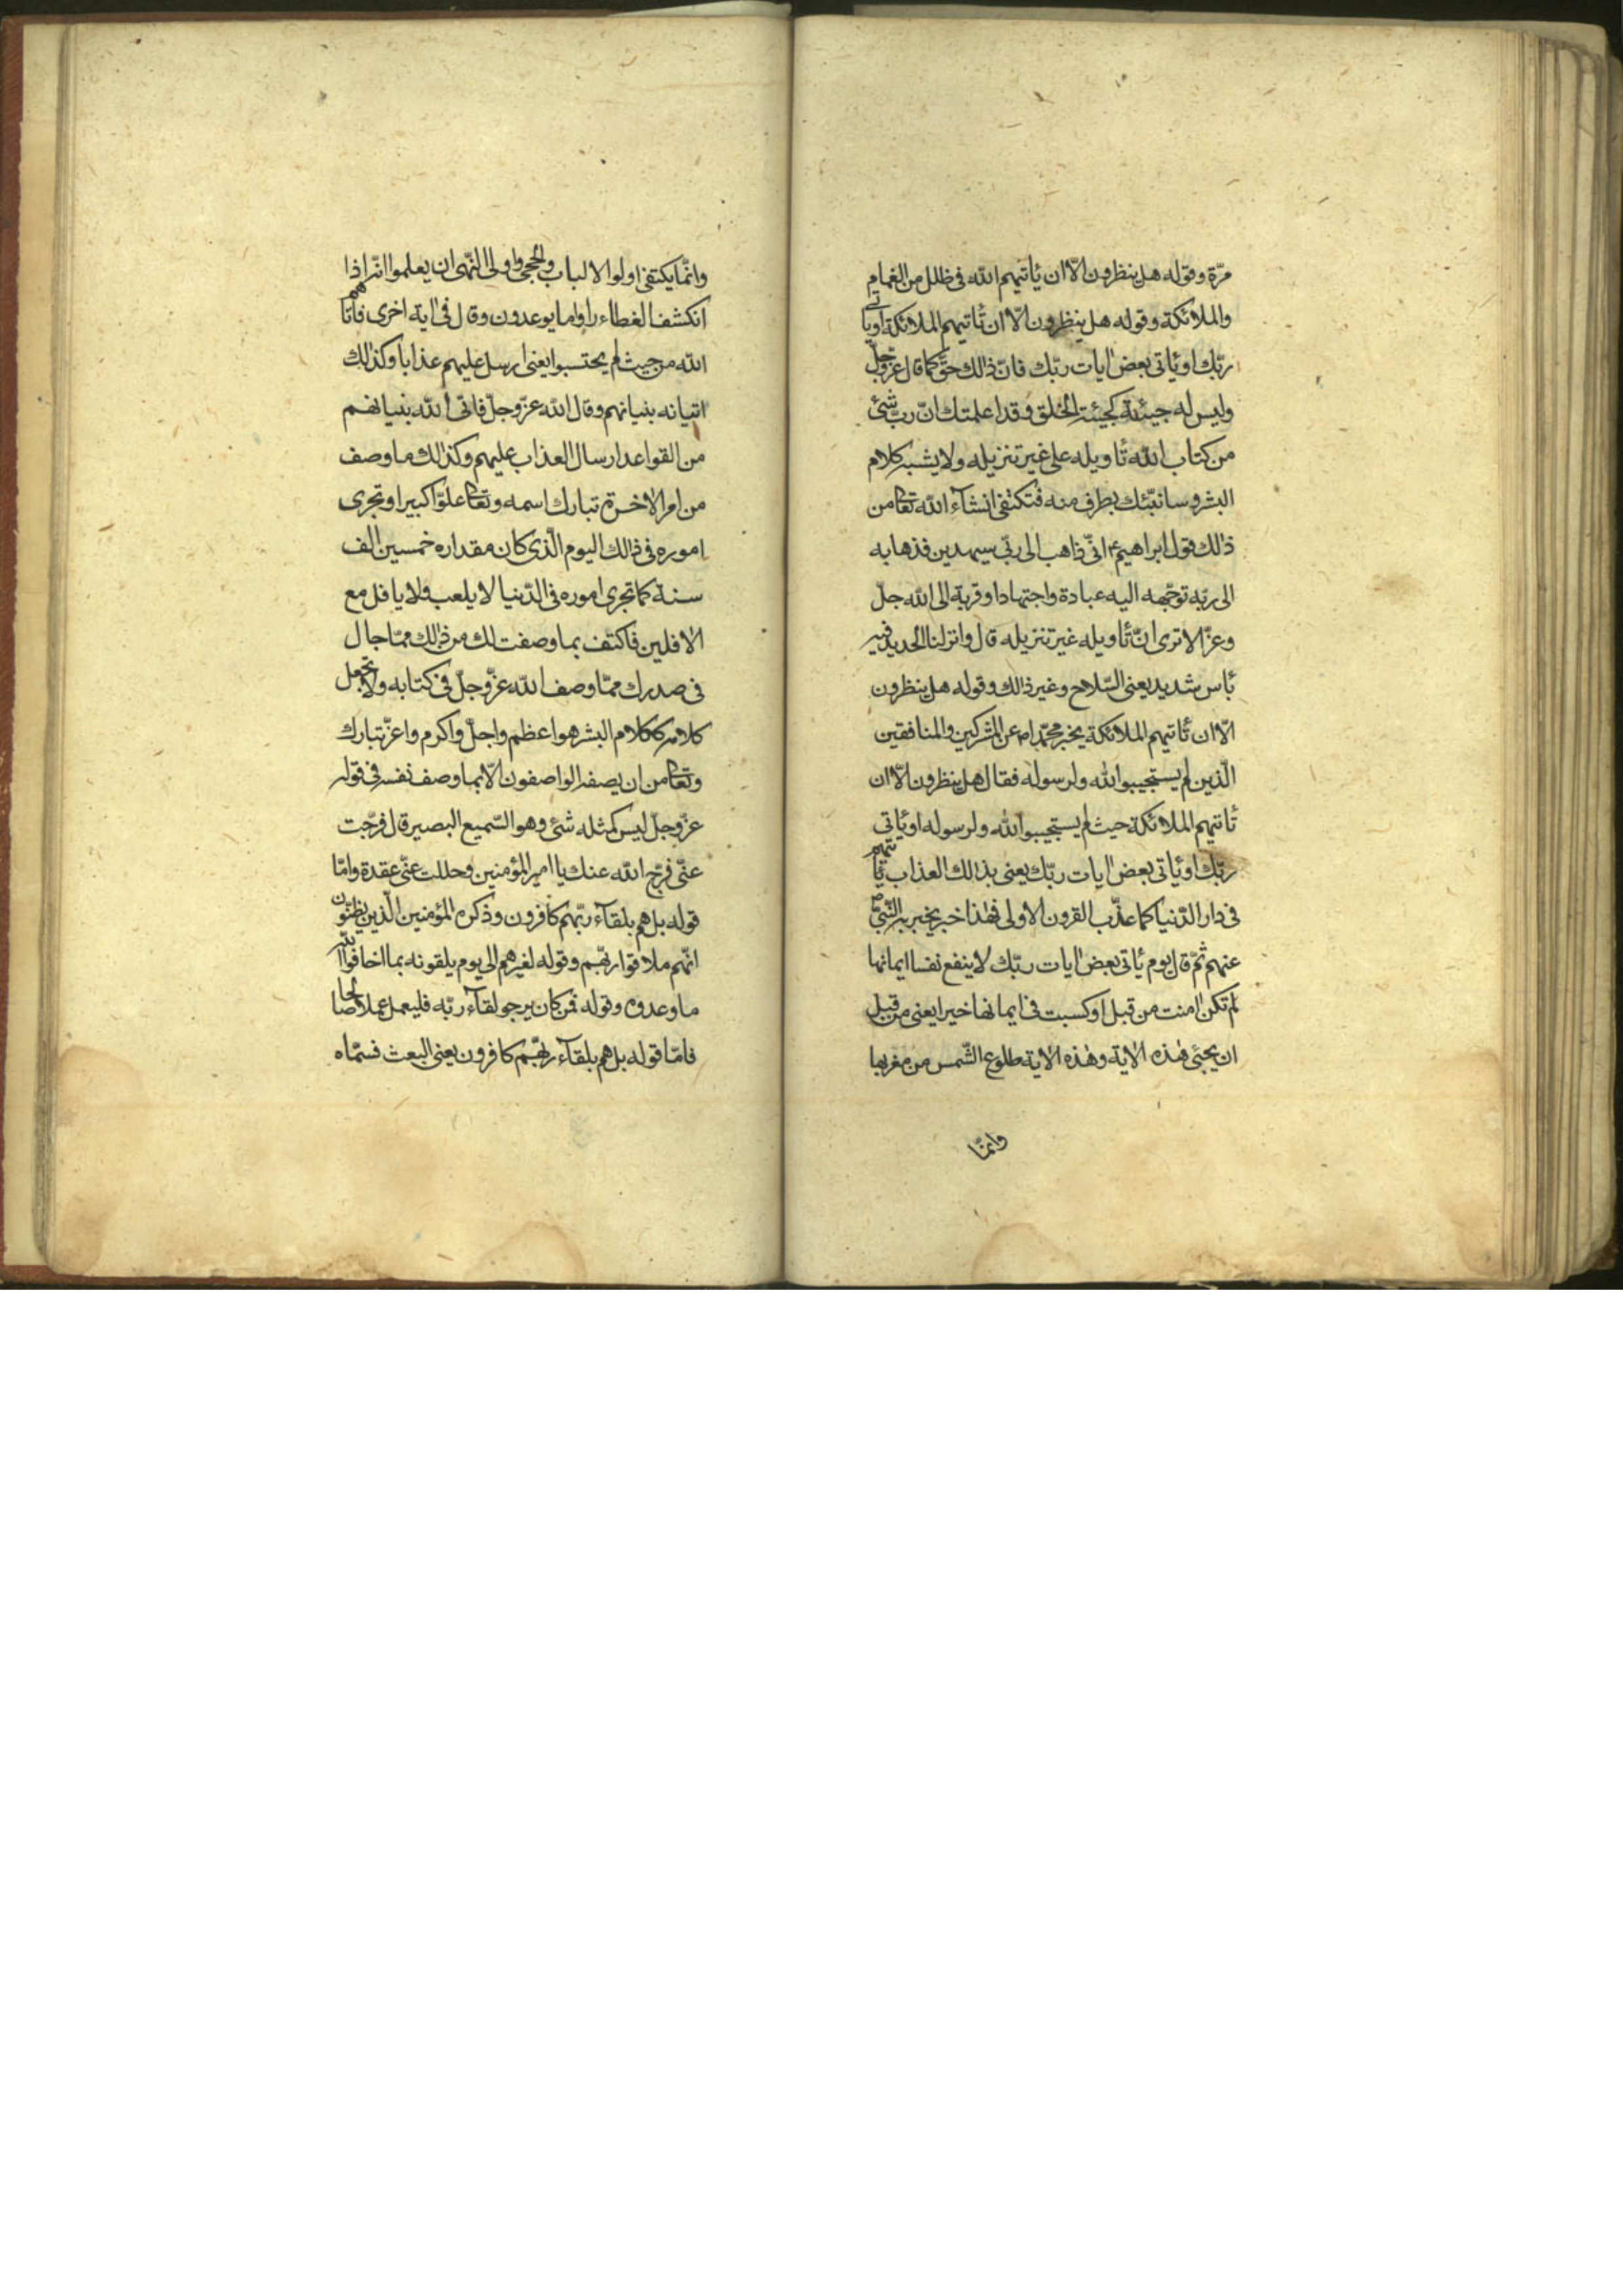 مرّة وقوله هل ينظرون الّا ان يأتيهم الله فى ظلل من الغمام
والملائكة وقوله هل ينظرون الّا ان تأتيهم الملائكة او يأتى
ربّك او يأتى بعض ايات ربّك فانّ ذالك حقّ كما قال عزّوجلّ
وليس له جيئة كجيئة الخلق وقد اعلمتك انّ ربّ شئ
من كتاب الله تأويله على غير تنزيله ولا يشبه كلام
البشر وسانبّئك بطرف منه فتكتفى انشآء الله تعا من
ذالك قول ابراهيم ع انّى ذاهب الى ربّى سيهدين فذهابه
الى ربّه توجّهه اليه عبادة واجتهادا وقربة الى الله جلّ
وعزّ الا ترى انّ تأويله غير تنزيله قال وانزلنا الحديد فيه
بأس شديد يعنى السّلاح وغير ذالك وقوله هل ينظرون
الّا ان تأتيهم الملائكة يخبر محمّدا ص عن المشركين والمنافقين
الّذين لم يستجيبوا لله ولرسوله فقال هل ينظرون الّا ان
تأتيهم الملائكة حيث لم يستجيبوا لله ولرسوله او يأتى
ربّك او يأتى بعض ايات ربّك يعنى بذالك العذاب يأتيهم
فى دار الدّنيا كما عذّب القرون الاولى فهذا خبر يخبر به النّبىّ ص
عنهم ثمّ قال يوم يأتى بعض ايات ربّك لا ينفع نفسا ايمانها
لم تكن امنت من قبل او كسبت فى ايمانها خيرا يعنى من قبل
ان يجئى هذه الاية وهذه الاية طلوع الشّمس من مغربها
وانمّا
وانمّا يكتفى اولوا الالباب والحجى واولى النّهى ان يعلموا انّه اذا
انكشف الغطاء راوا ما يوعدون وقال فى اية اخرى فاتاهم
الله من حيث لم يحتسبوا يعنى ارسل عليهم عذابا وكذالك
اتيانه بنيانهم وقال الله عزّ وجلّ فاتى الله بنيانهم
من القواعد ارسال العذاب عليهم وكذالك ما وصف
من امر الاخرة تبارك اسمه وتعا علوّا كبيرا وتجرى
اموره فى ذالك اليوم الّذى كان مقداره خمسين الف
سنة كما تجرى اموره فى الدّنيا لا يلعب ولا يافل مع
الافلين فاكتف بما وصفت لك من ذالك ممّا جال
فى صدرك ممّا وصف الله عزّ وجلّ فى كتابه ولا تجعل
كلامه ككلام البشر هو اعظم واجلّ واكرم واعزّ تبارك
وتعا من ان يصفه الواصفون الّا بما وصف نفسه فى قوله
عزّ وجلّ ليس كمثله شئ وهو السّميع البصير قال فرّجت
عنّى فرّج الله عنك يا امير المؤمنين وحللت عنّى عقدة وامّا
قوله بل هم بلقآء ربّهم كافرون وذكره المؤمنين الّذين يظنّون
انّهم ملاقوا ربّهم وقوله لغيرهم الى يوم يلقونه بما اخلفوا الله
ما وعدوه وقوله فمن كان يرجو لقآء ربّه فليعمل عملا صالحا
فامّا قوله بل هم بلقآء ربّهم كافرون يعنى البعث فسمّاه